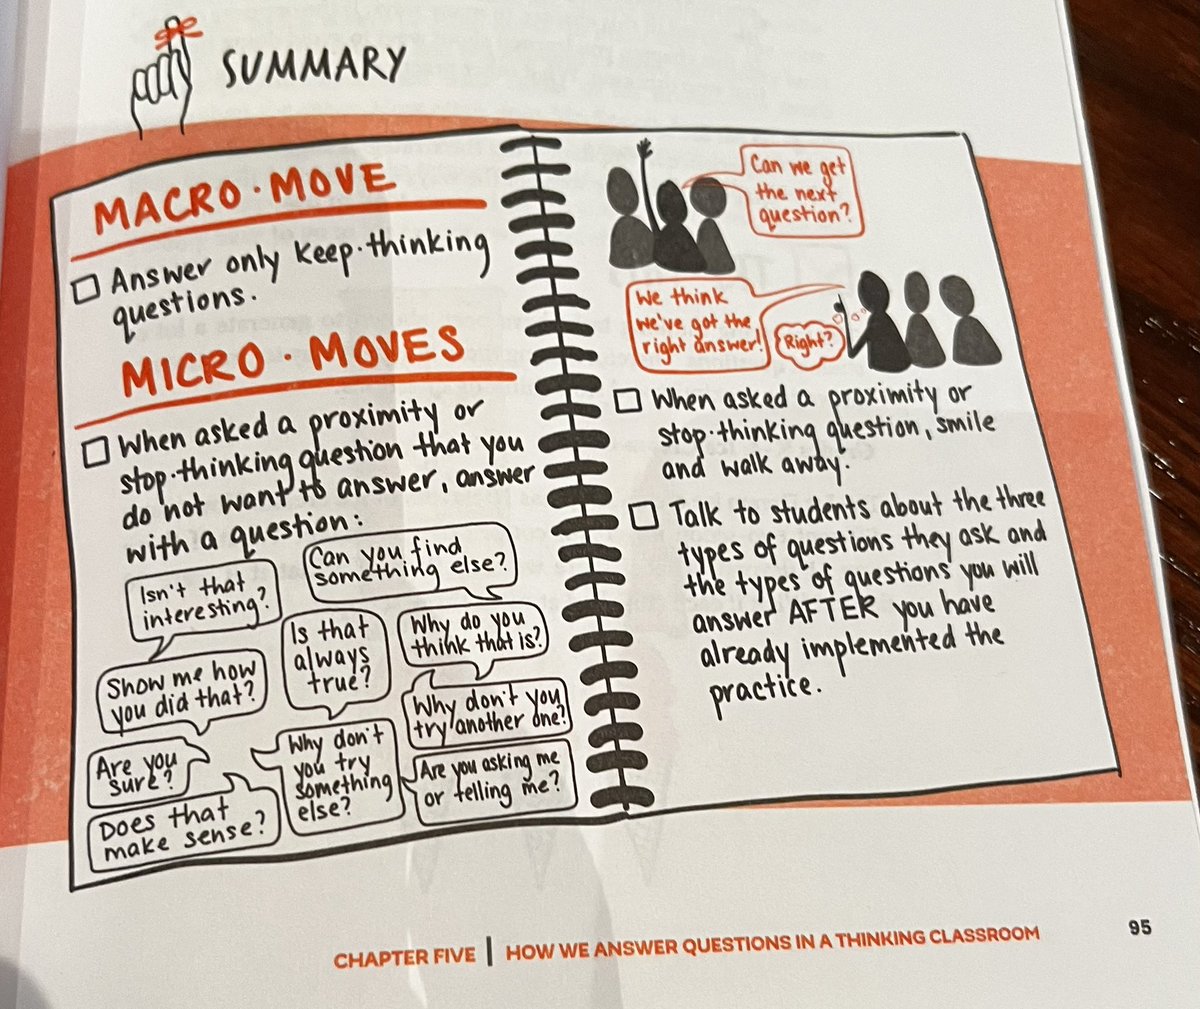 SUMMARY
MACRO·MOVE
Answer only keep·thinking
questions.
MICRO·MOVES
When asked a proximity or
stop·thinking question that you
do not want to answer, answer
with a question:
Isn't that
interesting?
Can you find
something else?
Show me how
you did that?
Is that
always
true?
Why do you
think that is?
Why don't you
try another one?
Are you
sure?
Why don't
you try
something
else?
Are you asking me
or telling me?
Does that
make sense?
Can we get
the next
question?
We think
we've got the
right answer!
Right?
When asked a proximity or
stop·thinking question, smile
and walk away.
Talk to students about the three
types of questions they ask and
the types of questions you will
answer AFTER you have
already implemented the
practice.
CHAPTER FIVE | HOW WE ANSWER QUESTIONS IN A THINKING CLASSROOM 95